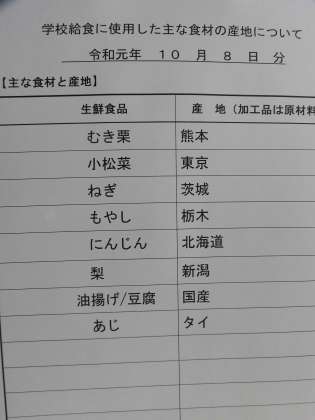 学校給食に使用した主な食材の産地について
令和元年 10 月 8 日 分
【主な食材と産地】
生鮮食品 産 地(加工品は原材料
むき栗 熊本
小松菜 東京
ねぎ 茨城
もやし 栃木
にんじん 北海道
梨 新潟
油揚げ/豆腐 国産
あじ タイ